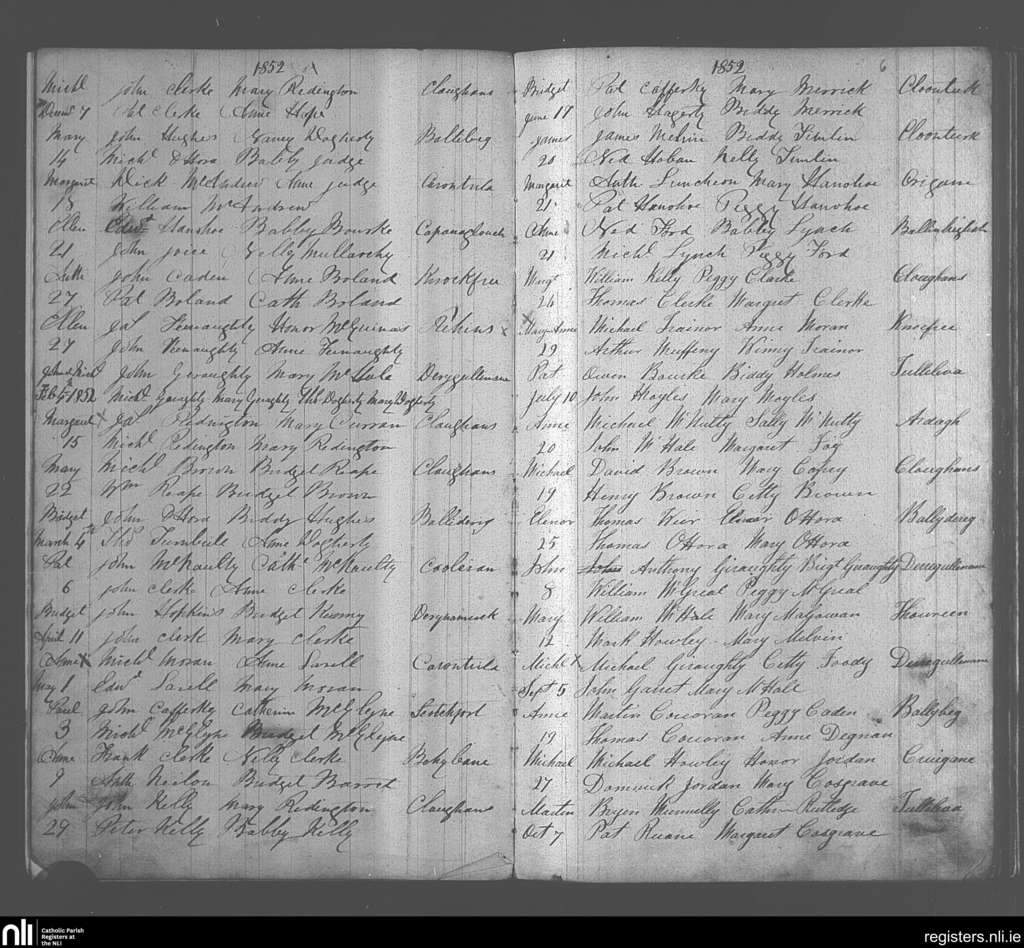 1852
Michl John Clerke Mary Redington Claughans
Decem 7 Pat Clerke Anne Hope
Mary John Hughes Nancy Dogherty Balleberg
14 Michl O Hora Babby Judge
Margaret Dick McAndrew Anne Judge Carontrila
15 William McAndrew
Ellen Edwd Hanahoe Babby Bourke
21 John Joice Nelly Mullarchy
Anth John Caden Anne Boland Knockfree
27 Pat Boland Cath Boland
Ellen Jas Honor McGuinas Rehins
27 John Anne
John & Michl John Geraughty Mary McHale Derygullenane
Feb 4 1852 Michl Geraughty Mary Geraughty Ths Dogherty Mary Dogherty
Margaret Jas Redington Mary Curran Claughans
15 Michl Redington Mary Redington
Mary Michl Brown Bridget Reape Claughans
22 Wm Reape Bridget Brown
Bridget John O Hora Biddy Hughes Balliderig
March 4th Thos Turnbull Anne Dogherty
Pat John McNaulty Cathe McNaulty Coolcran
6 John Clerke Anne Clerke
Bridget John Hopkins Bridget Kearny Derynameck
April 11 John Clerk Mary Clerke
Anne Michl Moran Anne Sarell Carontrila
May 1 Edwd Sarell Mary Moran
Paul John Cafferky Catherine McGlyne
3 Michl McGlyne Bridget McGlyne
Anne Frank Clerke Nelly Clerke Bohybane
9 Anth Neilon Bridget Barrot
John John Kelly Mary Redington Claughans
29 Peter Kelly Babby Kelly
1852 6
Bridget Pat Cafferky Mary Merrick Cloonturk
June 17 John Hagerty Biddy Merrick
James James Melvin Biddy Timlin Cloonturk
20 Ned Hoban Nelly Timlin
Margaret Anth Luncheon Mary Hanohoe Crigane
21 Pat Hanohoe Peggy Hanohoe
Anne Ned Ford Babby Lynch
21 Michl Lynch Peggy Ford
Margt William Kelly Peggy Clarke Cloaghans
26 Thomas Clerke Margret Clerke
Mary Anne Michael Trainor Anne Moran Knocfree
29 Arthur Muffeny Winny Trainor
Pat Owen Bourke Biddy Holmes Tulleleva
July 10 John Moyles Mary Moyles
Anne Michael McNutty Sally McNutty Ardagh
20 John McHale Margaret Foy
Michael David Brown Mary Cofrey Cloaughans
19 Henry Brown Citty Brown
Elenor Thomas Kier Elenor OHora Ballydereg
25 Thomas OHora Mary OHora
John Anthony Giraughty Brigt Giraughty Deragullenane
8 William McGreal Peggy McGreal
Mary William McHale Mary Magawan Shanreen
12 Mark Howley Mary Melvin
Michl Michael Giraughty Citty Foody Deragullenane
Sept 5 John Garret Mary McHale
Anne Martin Corcoran Peggy Caden Ballybeg
19 Thomas Corcoran Anne Degnan
Michael Michael Howley Honor Jordan Criigane
27 Dominick Jordan Mary Cosgrave
Martin Bryen Munnelly Cathn Rutledge
Oct 7 Pat Ruane Margaret Cosgrave
nli Catholic Parish
Registers at
the NLI
registers.nli.ie